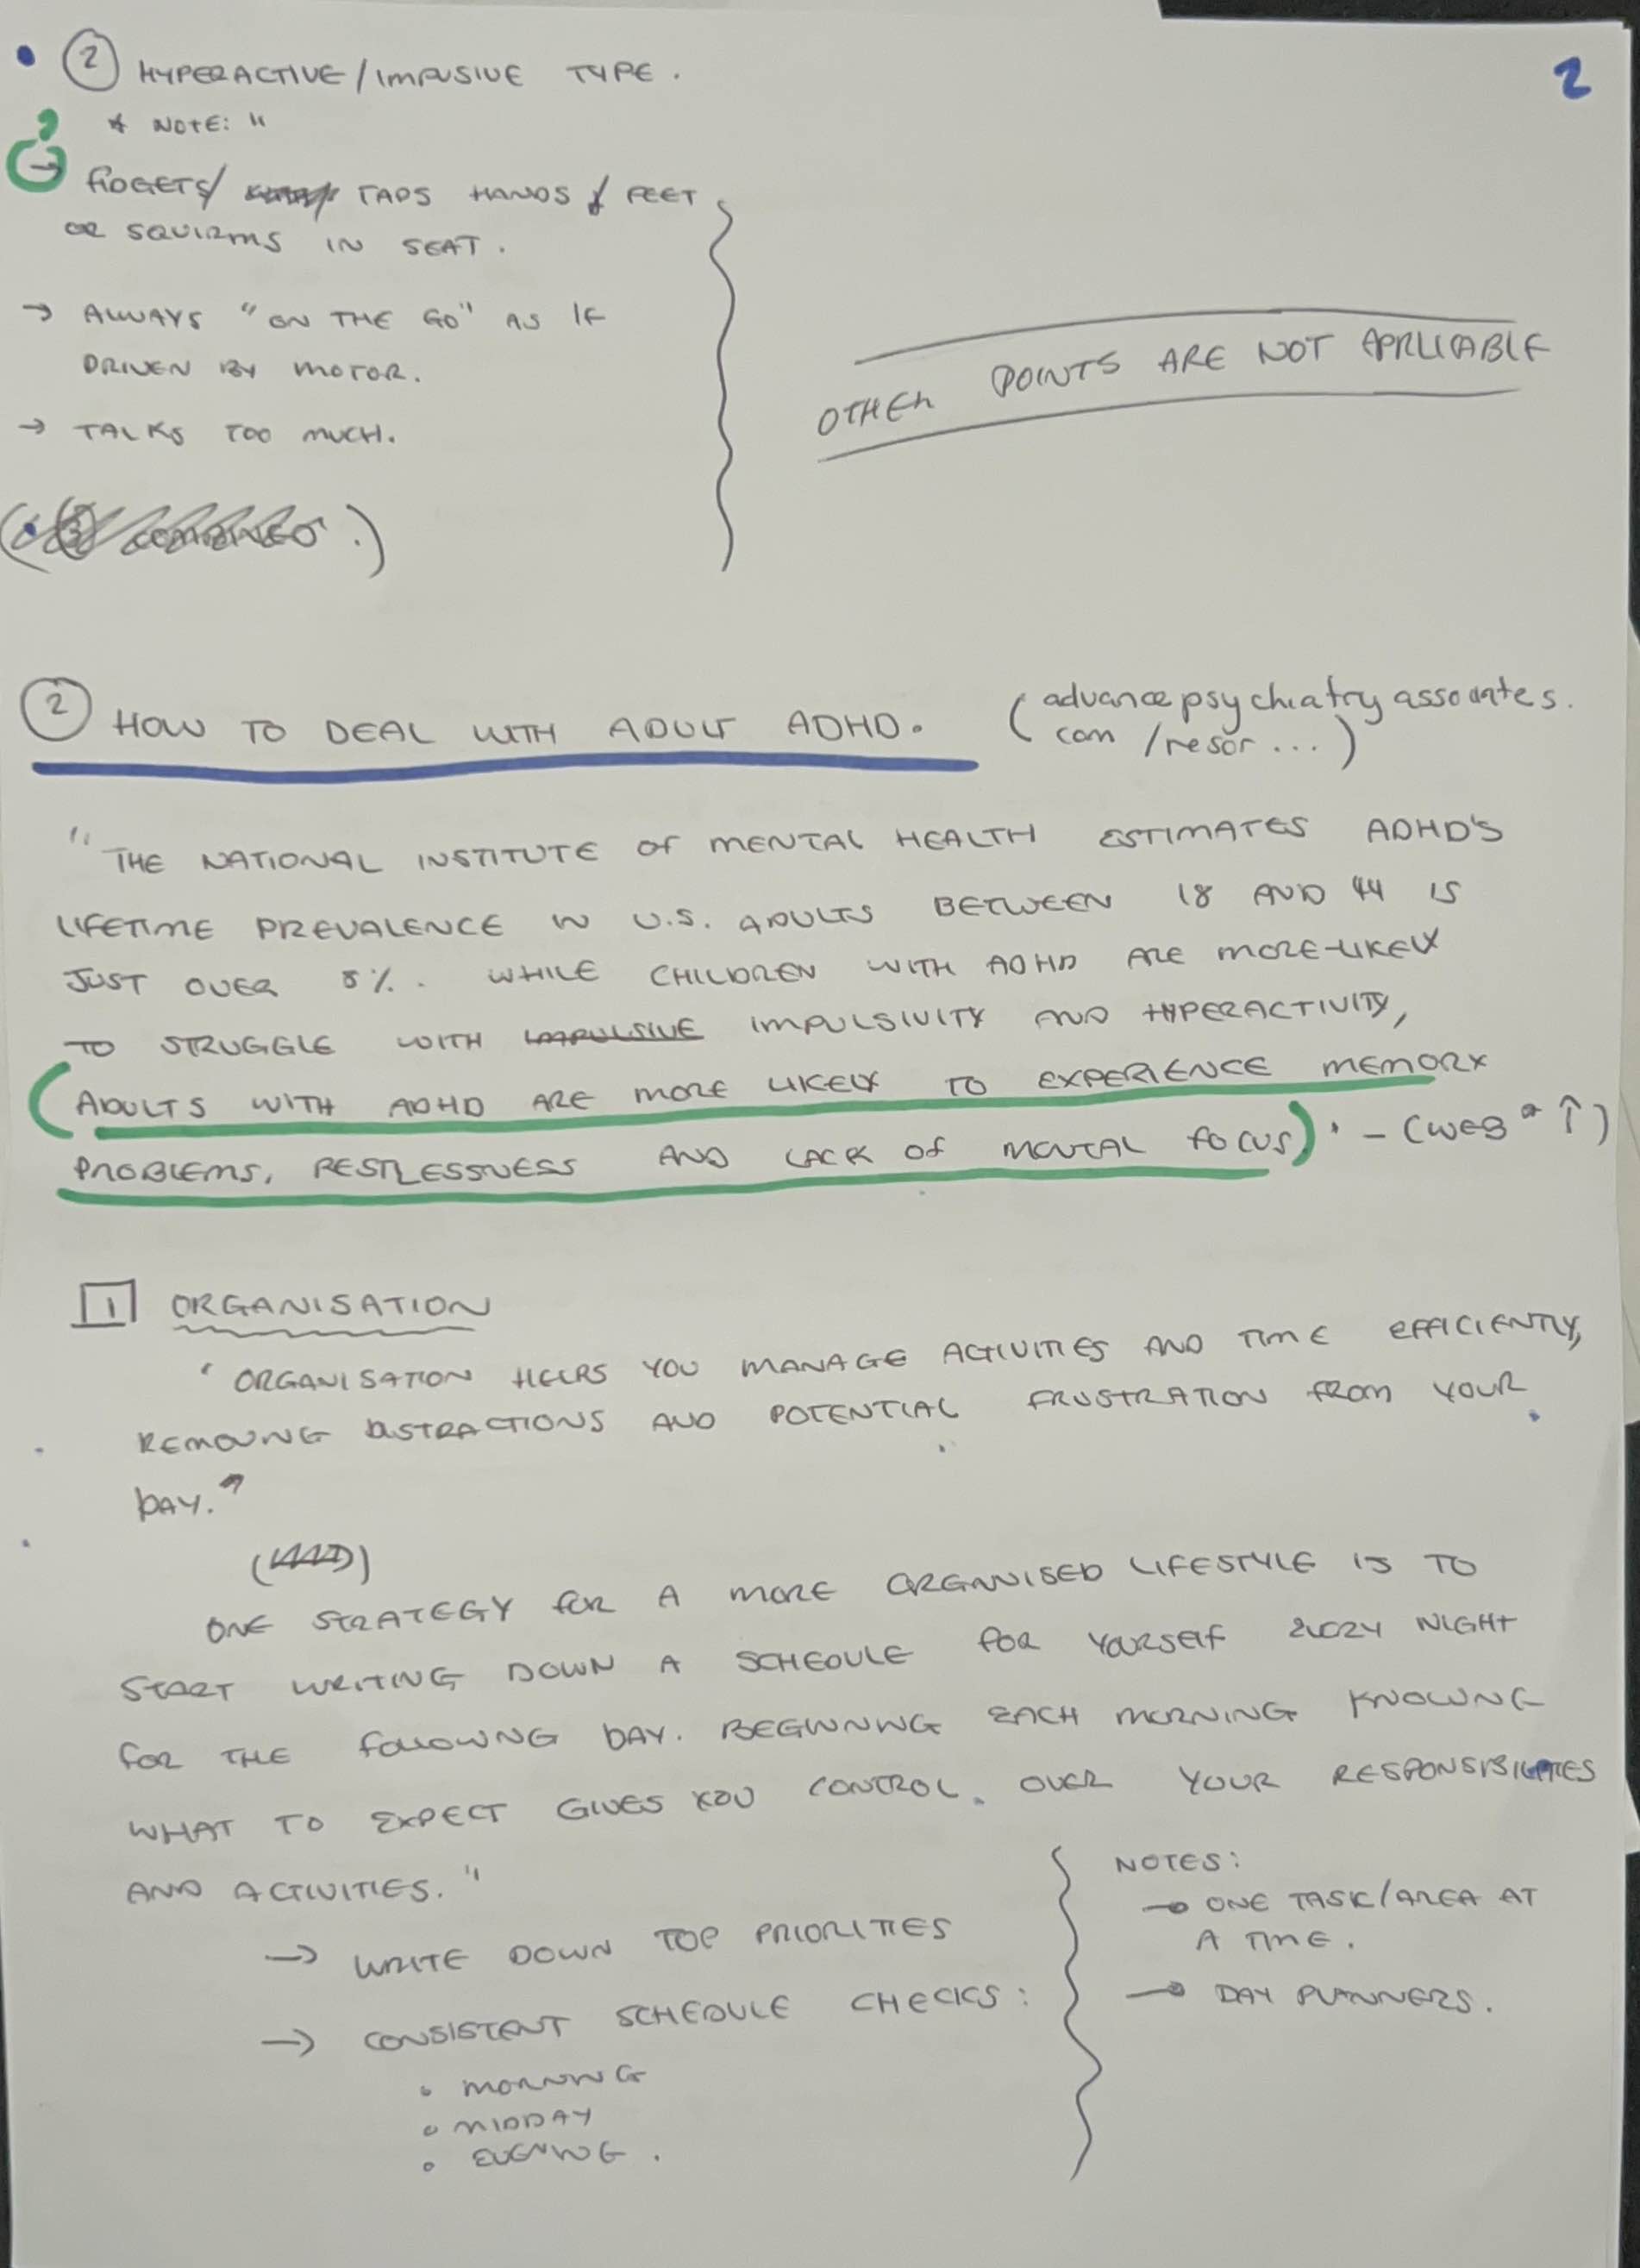 2
• ② HYPERACTIVE/IMPUSIVE TYPE.
* NOTE: "
→ FIDGETS/ TAPS HANDS & FEET
OR SQUIRMS IN SEAT.
→ ALWAYS "ON THE GO" AS IF
DRIVEN BY MOTOR.
→ TALKS TOO MUCH.
OTHER POINTS ARE NOT APPLICABLE
② HOW TO DEAL WITH ADULT ADHD.
(advancepsychiatryassociates.
com /resor ...)
"THE NATIONAL INSTITUTE OF MENTAL HEALTH ESTIMATES ADHD'S
LIFETIME PREVALENCE IN U.S. ADULTS BETWEEN 18 AND 44 IS
JUST OVER 8%. WHILE CHILDREN WITH ADHD ARE MORE-LIKELY
TO STRUGGLE WITH IMPULSIVE IMPULSIVITY AND HYPERACTIVITY,
(ADULTS WITH ADHD ARE MORE LIKELY TO EXPERIENCE MEMORY
PROBLEMS, RESTLESSNESS AND LACK OF MENTAL FOCUS). - (WEB ↑)
1 ORGANISATION
' ORGANISATION HELPS YOU MANAGE ACTIVITIES AND TIME EFFICIENTLY,
REMOVING DISTRACTIONS AND POTENTIAL FRUSTRATION FROM YOUR
DAY."
ONE STRATEGY FOR A MORE ORGANISED LIFESTYLE IS TO
START WRITING DOWN A SCHEDULE FOR YOURSELF EVERY NIGHT
FOR THE FOLLOWING DAY. BEGINNING EACH MORNING KNOWING
WHAT TO EXPECT GIVES YOU CONTROL OVER YOUR RESPONSIBILITIES
AND ACTIVITIES."
→ WRITE DOWN TOP PRIORITIES
→ CONSISTENT SCHEDULE CHECKS:
• MORNING
• MIDDAY
• EVENING.
NOTES:
→ ONE TASK/AREA AT
A TIME.
→ DAY PLANNERS.